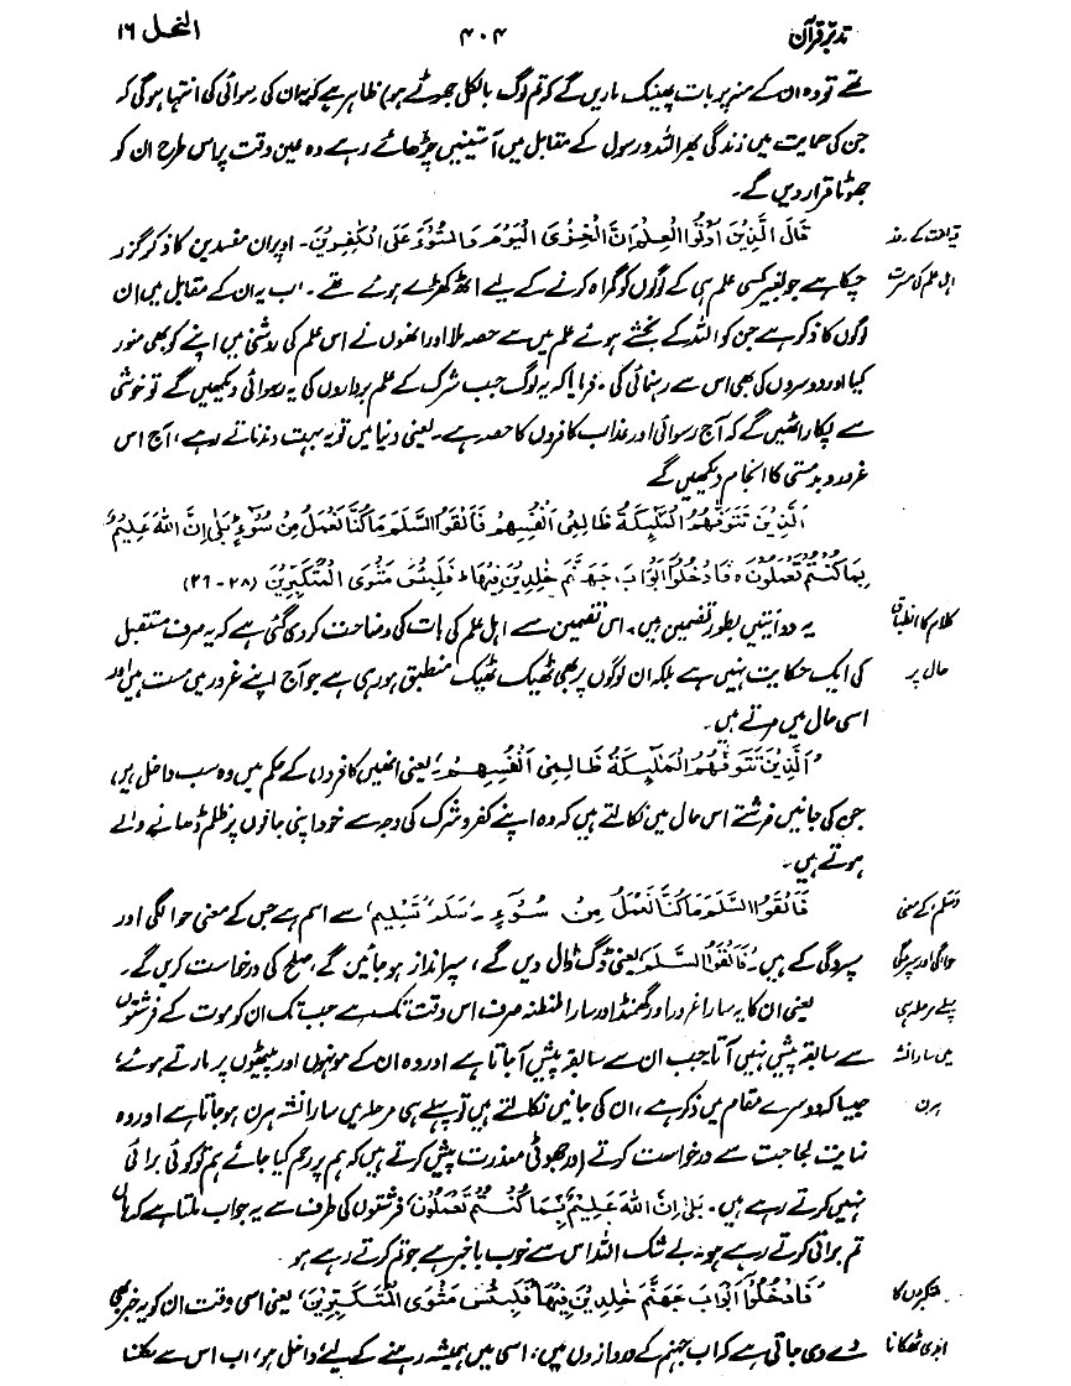 تدبر قرآن ۴۰۴ النحل ۱۶
تھے تو وہ ان کے منہ پر بات پھینک ماریں گے کہ تم لوگ بالکل جھوٹے ہو) ظاہر ہے کہ یہ ان کی رسوائی کی انتہا ہوگی کہ
جن کی حمایت میں زندگی بھر اللہ و رسول کے مقابل میں آستینیں چڑھائے رہے وہ عین وقت پر اس طرح ان کو
جھوٹا قرار دیں گے۔
قیامت کے روز
قَالَ الَّذِيْنَ اُوْتُوا الْعِلْمَ اِنَّ الْخِزْىَ الْيَوْمَ وَالسُّوْٓءَ عَلَى الْكٰفِرِيْنَ۔ اوپر ان مفسدین کا ذکر گزر
اہل علم کی مسرت
چکا ہے جو بغیر کسی علم ہی کے لوگوں کو گمراہ کرنے کے لیے اٹھ کھڑے ہوئے تھے۔ اب یہ ان کے مقابل میں ان
لوگوں کا ذکر ہے جن کو اللہ کے بخشے ہوئے علم میں سے حصہ ملا اور انھوں نے اس علم کی روشنی میں اپنے کو بھی منور
کیا اور دوسروں کی بھی اس سے رہنمائی کی۔ فرمایا کہ یہ لوگ جب شرک کے علم برداروں کی یہ رسوائی دیکھیں گے تو خوشی
سے پکار اٹھیں گے کہ آج رسوائی اور عذاب کافروں کا حصہ ہے۔ یعنی دنیا میں تو یہ بہت دندناتے رہے، آج اس
غرور و بدمستی کا انجام دیکھیں گے
اَلَّذِيْنَ تَتَوَفّٰىهُمُ الْمَلٰٓئِكَةُ ظَالِمِىْٓ اَنْفُسِهِمْ فَاَلْقَوُا السَّلَمَ مَا كُنَّا نَعْمَلُ مِنْ سُوْٓءٍ ؕ بَلٰٓى اِنَّ اللّٰهَ عَلِيْمٌۢ
بِمَا كُنْتُمْ تَعْمَلُوْنَ ہ فَادْخُلُوْٓا اَبْوَابَ جَهَنَّمَ خٰلِدِيْنَ فِيْهَا ؕ فَلَبِئْسَ مَثْوَى الْمُتَكَبِّرِيْنَ (۲۸-۲۹)
کلام کا انطباق
یہ دو آیتیں بطور تضمین ہیں۔ اس تضمین سے اہل علم کی بات کی وضاحت کر دی گئی ہے کہ یہ صرف مستقبل
حال پر
کی ایک حکایت نہیں ہے بلکہ ان لوگوں پر بھی ٹھیک ٹھیک منطبق ہو رہی ہے جو آج اپنے غرور میں مست ہیں اور
اسی حال میں مرتے ہیں۔
'اَلَّذِيْنَ تَتَوَفّٰىهُمُ الْمَلٰٓئِكَةُ ظَالِمِىْٓ اَنْفُسِهِمْ' یعنی انھیں کافروں کے حکم میں وہ سب داخل ہیں،
جن کی جانیں فرشتے اس حال میں نکالتے ہیں کہ وہ اپنے کفر و شرک کی وجہ سے خود اپنی جانوں پر ظلم ڈھانے والے
ہوتے ہیں۔
'سَلَم' کے معنی
فَاَلْقَوُا السَّلَمَ مَا كُنَّا نَعْمَلُ مِنْ سُوْٓءٍ۔ 'سَلَم' 'تسلیم' سے اسم ہے جس کے معنی حوالگی اور
حوالگی اور سپردگی
سپردگی کے ہیں۔ 'فَاَلْقَوُا السَّلَمَ' یعنی ڈگ ڈال دیں گے، سپر انداز ہو جائیں گے، صلح کی درخواست کریں گے۔
پہلے مرحلہ ہی
یعنی ان کا یہ سارا غرور اور گھمنڈ اور سارا طنطنہ صرف اس وقت تک ہے جب تک ان کو موت کے فرشتوں
میں سارا نشہ
سے سابقہ پیش نہیں آتا۔ جب ان سے سابقہ پیش آجاتا ہے اور وہ ان کے مونہوں اور پیٹھوں پر مارتے ہوئے،
ہرن
جیسا کہ دوسرے مقام میں ذکر ہے، ان کی جانیں نکالتے ہیں تو پہلے ہی مرحلہ میں سارا نشہ ہرن ہو جاتا ہے اور وہ
نہایت لجاجت سے درخواست کرتے اور جھوٹی معذرت پیش کرتے ہیں کہ ہم پر رحم کیا جائے ہم تو کوئی برائی
نہیں کرتے رہے ہیں۔ بَلٰٓى اِنَّ اللّٰهَ عَلِيْمٌۢ بِمَا كُنْتُمْ تَعْمَلُوْنَ، فرشتوں کی طرف سے یہ جواب ملتا ہے کہ ہاں
تم برائی کرتے رہے ہو۔ بے شک اللہ اس سے خوب باخبر ہے جو تم کرتے رہے ہو۔
متکبروں کا
'فَادْخُلُوْٓا اَبْوَابَ جَهَنَّمَ خٰلِدِيْنَ فِيْهَا فَلَبِئْسَ مَثْوَى الْمُتَكَبِّرِيْنَ' یعنی اسی وقت ان کو یہ خبر بھی
ابدی ٹھکانا
دے دی جاتی ہے کہ اب جہنم کے دروازوں میں، اسی میں ہمیشہ رہنے کے لیے داخل ہو، اب اس سے نکلنا